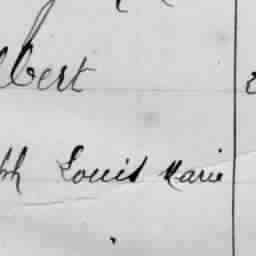 lbert
ph Louis Marie